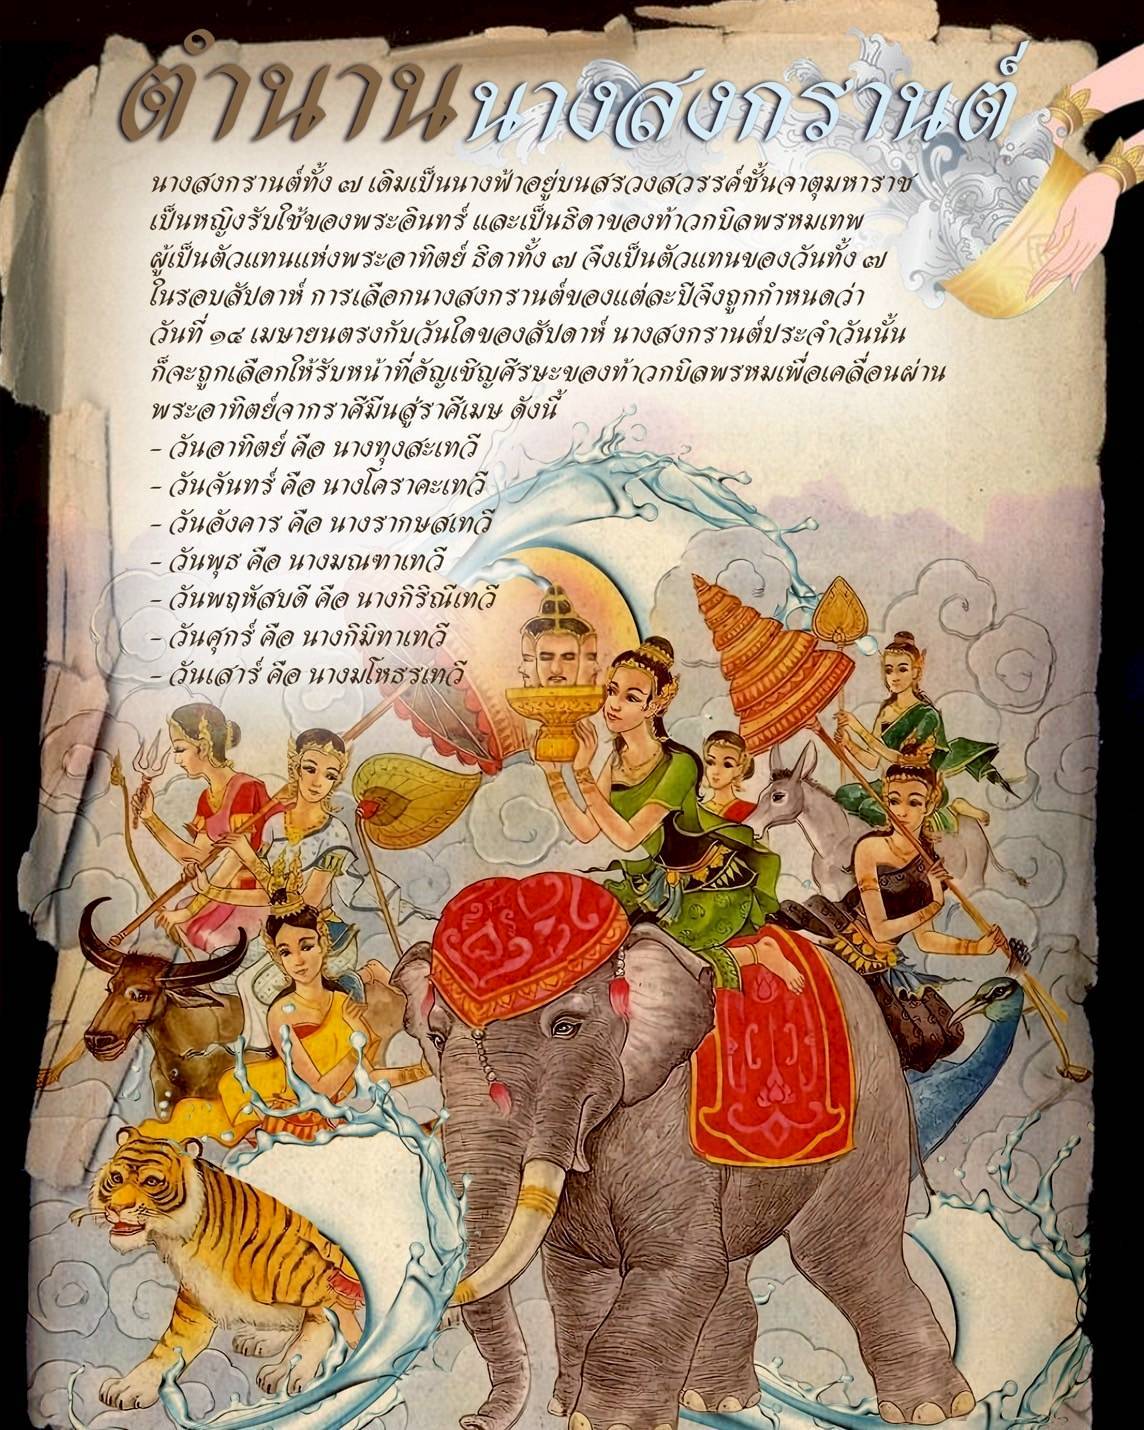 ตำนานนางสงกรานต์
นางสงกรานต์ทั้ง ๗ เดิมเป็นนางฟ้าอยู่บนสรวงสวรรค์ชั้นจาตุมหาราช
เป็นหญิงรับใช้ของพระอินทร์ และเป็นธิดาของท้าวกบิลพรหมเทพ
ผู้เป็นตัวแทนแห่งพระอาทิตย์ ธิดาทั้ง ๗ จึงเป็นตัวแทนของวันทั้ง ๗
ในรอบสัปดาห์ การเลือกนางสงกรานต์ของแต่ละปีจึงถูกกำหนดว่า
วันที่ ๑๔ เมษายนตรงกับวันใดของสัปดาห์ นางสงกรานต์ประจำวันนั้น
ก็จะถูกเลือกให้รับหน้าที่อัญเชิญศีรษะของท้าวกบิลพรหมเพื่อเคลื่อนผ่าน
พระอาทิตย์จากราศีมีนสู่ราศีเมษ ดังนี้
- วันอาทิตย์ คือ นางทุงสะเทวี
- วันจันทร์ คือ นางโคราคะเทวี
- วันอังคาร คือ นางรากษสเทวี
- วันพุธ คือ นางมณฑาเทวี
- วันพฤหัสบดี คือ นางกิริณีเทวี
- วันศุกร์ คือ นางกิมิทาเทวี
- วันเสาร์ คือ นางมโหธรเทวี